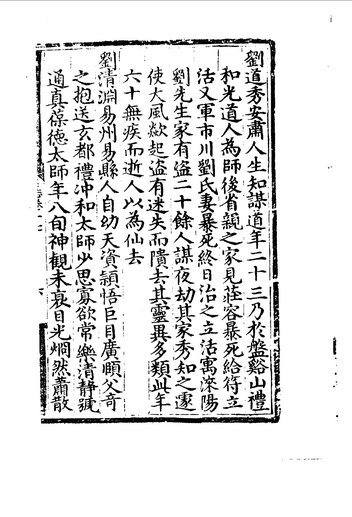 劉道秀安肅人生知謀道年二十三乃於盤谿山禮
和光道人為師後省親之家見莊容暴死給符立
活又軍市川劉氏妻暴死終日治之立活寓深陽
劉先生家有盗二十餘人謀夜劫其家秀知之遂
使大風欻起盗有迷失而潰去其靈異多類此年
六十無疾而逝人以為仙去
劉清淵易州易縣人自幼天資頴悟巨目廣頥父奇
之抱送玄都禮冲和太師少思寡欲常樂清静號
通真葆德太師年八旬神觀未衰目光烱然蕭散